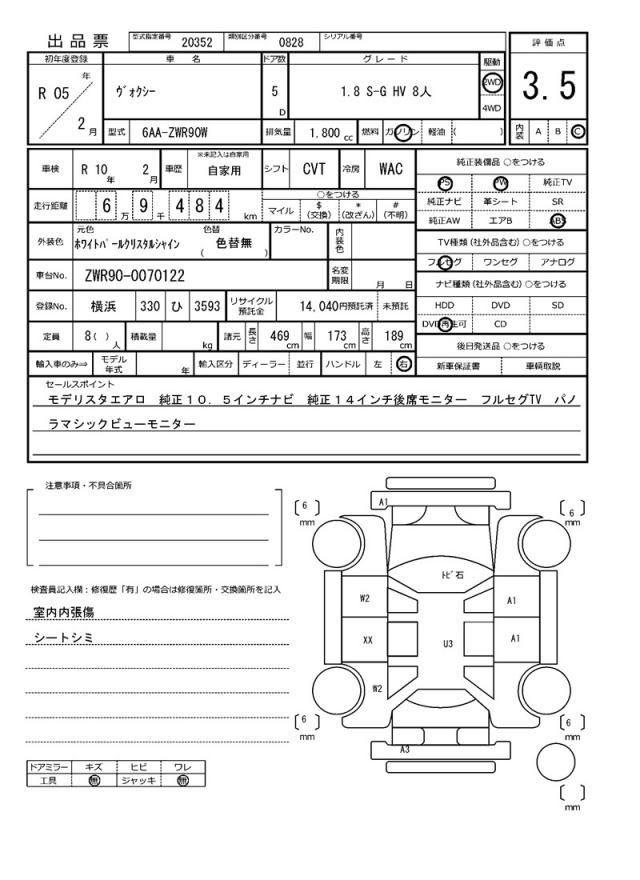 出品票 型式指定番号 20352 類別区分番号 0828 シリアル番号
評価点
3.5
内装 A B C
初年度登録 車名 ドア数 グレード 駆動
R 05 年 2 月 ヴォクシー 5 D 1.8 S-G HV 8人 2WD 4WD
型式 6AA-ZWR90W 排気量 1.800 cc 燃料 ガソリン 軽油 ( )
車検 R 10 年 2 月 車歴 ※未記入は自家用 自家用 シフト CVT 冷房 WAC
走行距離 6 万 9 千 4 8 4 km ○をつける マイル $ (交換) * (改ざん) # (不明)
外装色 元色 ホワイトパールクリスタルシャイン 色替 ( 色替無 ) カラーNo. 内装色
車台No. ZWR90-0070122 名変期限 月 日
登録No. 横浜 330 ひ 3593 リサイクル預託金 14,040円預託済 未預託
定員 8( ) 人 積載量 kg 諸元 長さ 469 cm 幅 173 cm 高さ 189 cm
輸入車のみ⇒ モデル年式 年 輸入区分 ディーラー 並行 ハンドル 左 右
純正装備品 ○をつける
PS PW 純正TV
純正ナビ 革シート SR
純正AW エアB ABS
TV種類(社外品含む)○をつける
フルセグ ワンセグ アナログ
ナビ種類(社外品含む)○をつける
HDD DVD SD
DVD再生可 CD
後日発送品 ○をつける
新車保証書 車輌取説
セールスポイント
モデリスタエアロ 純正10.5インチナビ 純正14インチ後席モニター フルセグTV パノ
ラマシックビューモニター
注意事項・不具合箇所
検査員記入欄:修復歴「有」の場合は修復箇所・交換箇所を記入
室内内張傷
シートシミ
ドアミラー キズ ヒビ ワレ
工具 無 ジャッキ 無
A1
6 mm
6 mm
トビ石
W2 A1
XX U3 A1
W2
6 mm
6 mm
A3
mm